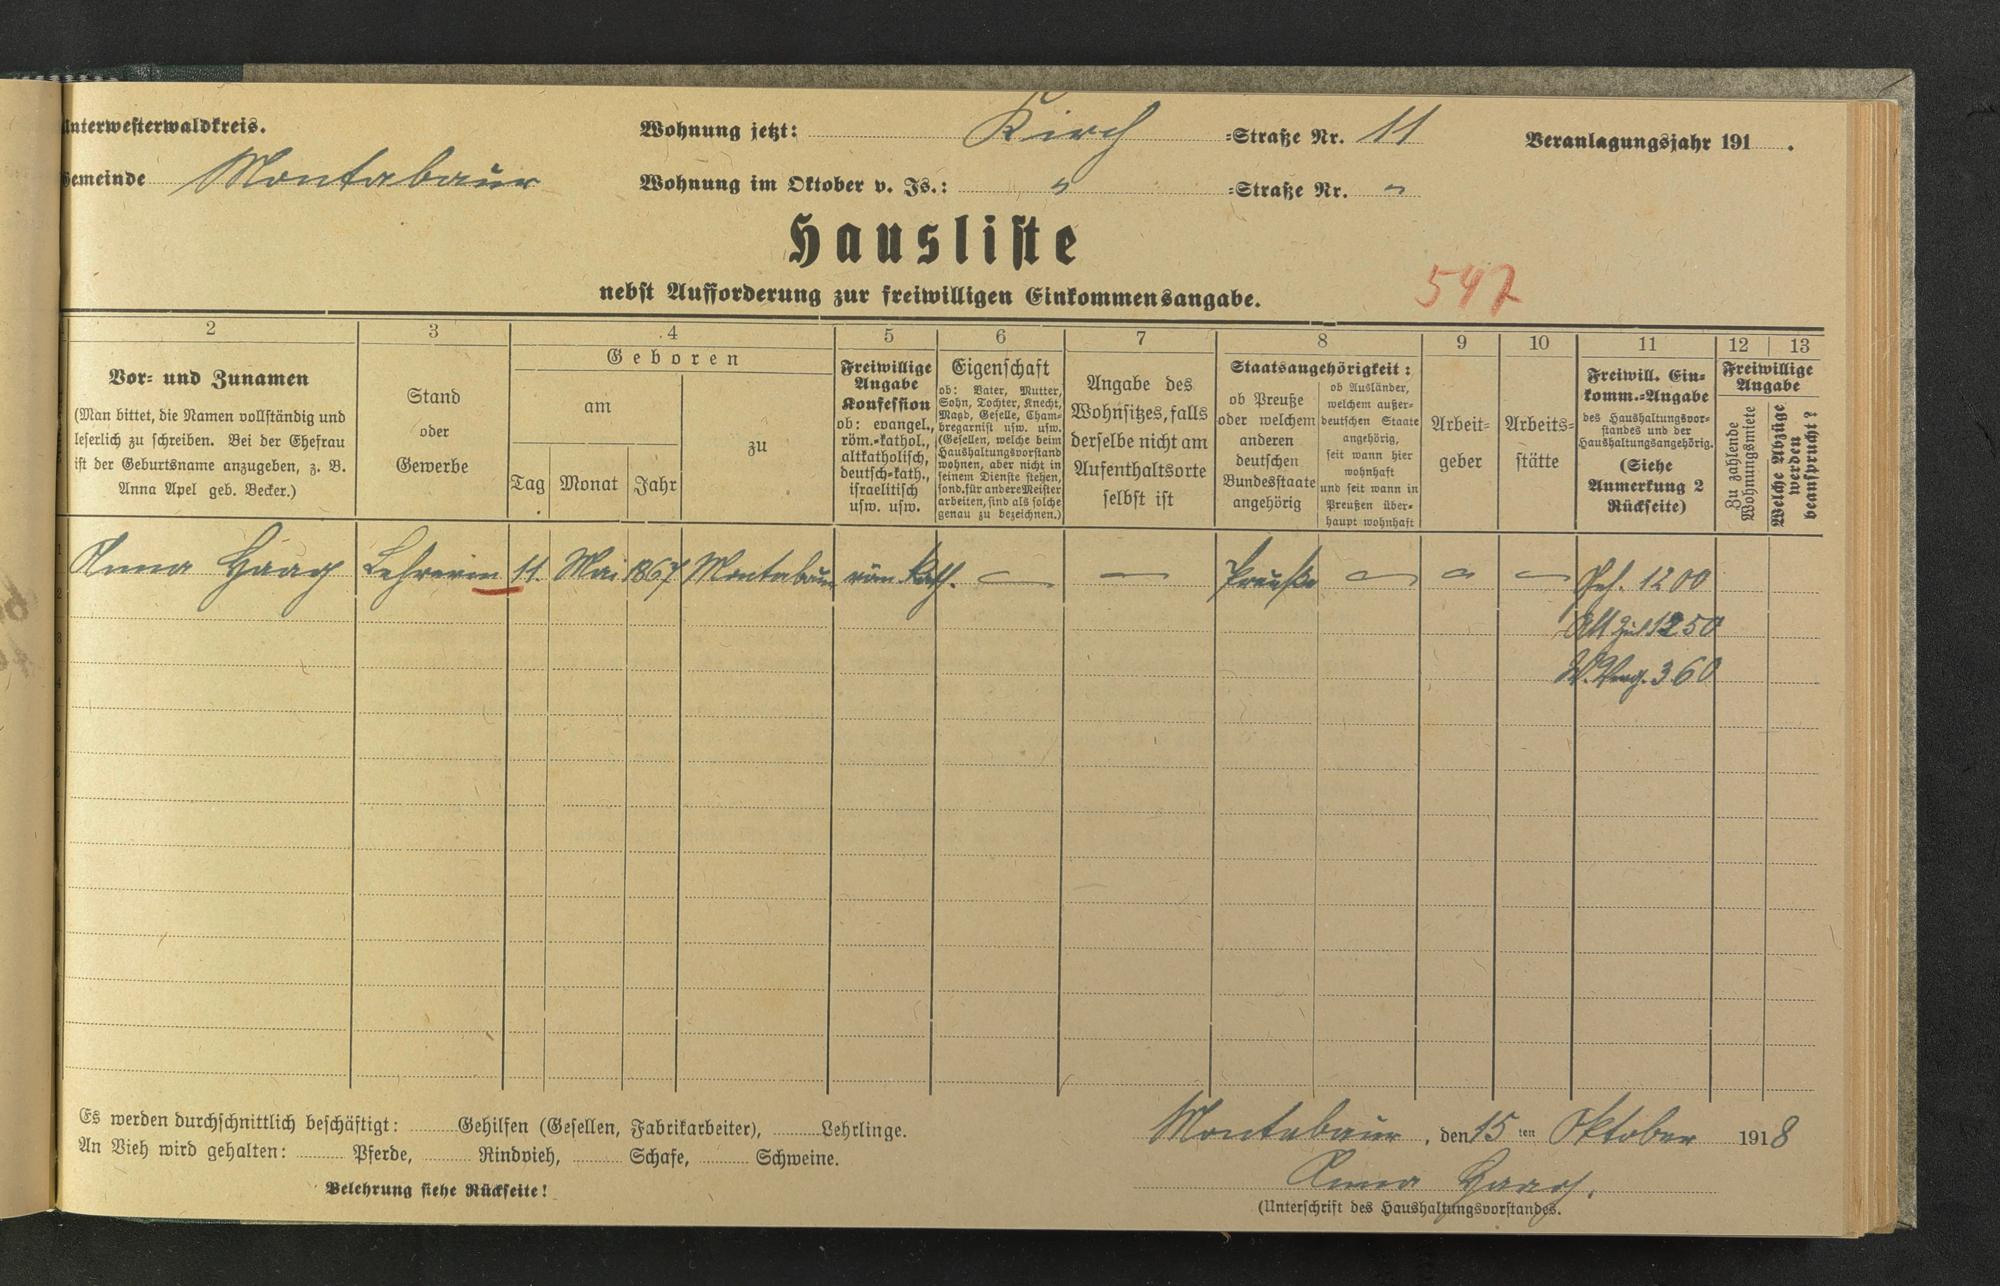 Unterwesterwaldkreis.
Gemeinde Montabaur
Wohnung jetzt: Kirch =Straße Nr. 11
Wohnung im Oktober v. Js.: " =Straße Nr. "
Veranlagungsjahr 191 .
Hausliste
nebst Aufforderung zur freiwilligen Einkommensangabe.
547
2 3 4 5 6 7 8 9 10 11 12 13
Vor= und Zunamen
(Man bittet, die Namen vollständig und
leserlich zu schreiben. Bei der Ehefrau
ist der Geburtsname anzugeben, z. B.
Anna Apel geb. Becker.)
Stand
oder
Gewerbe
Geboren
am
Tag Monat Jahr
zu
Freiwillige
Angabe
Konfession
ob: evangel.,
röm.=kathol.,
altkatholisch,
deutsch=kath.,
israelitisch
usw. usw.
Eigenschaft
ob: Vater, Mutter,
Sohn, Tochter, Knecht,
Magd, Geselle, Cham=
bregarnist usw. usw.
(Gesellen, welche beim
Haushaltungsvorstand
wohnen, aber nicht in
seinem Dienste stehen,
sond. für andere Meister
arbeiten, sind als solche
genau zu bezeichnen.)
Angabe des
Wohnsitzes, falls
derselbe nicht am
Aufenthaltsorte
selbst ist
Staatsangehörigkeit:
ob Preuße
oder welchem
anderen
deutschen
Bundesstaate
angehörig
ob Ausländer,
welchem außer=
deutschen Staate
angehörig,
seit wann hier
wohnhaft
und seit wann in
Preußen über=
haupt wohnhaft
Arbeit=
geber
Arbeits=
stätte
Freiwill. Ein=
komm.=Angabe
des Haushaltungsvor=
standes und der
Haushaltungsangehörig.
(Siehe
Anmerkung 2
Rückseite)
Freiwillige
Angabe
Zu zahlende
Wohnungsmiete
Welche Abzüge
werden
beansprucht?
1 Anna Haag Lehrerin 11. Mai 1867 Montabaur röm. kath. — — Preuße — — — Geh. 1200
2
3 1250
4 360
5
6
Es werden durchschnittlich beschäftigt: Gehilfen (Gesellen, Fabrikarbeiter), Lehrlinge.
An Vieh wird gehalten: Pferde, Rindvieh, Schafe, Schweine.
Belehrung siehe Rückseite!
Montabaur, den 15 ten Oktober 1918
Anna Haag.
(Unterschrift des Haushaltungsvorstandes.